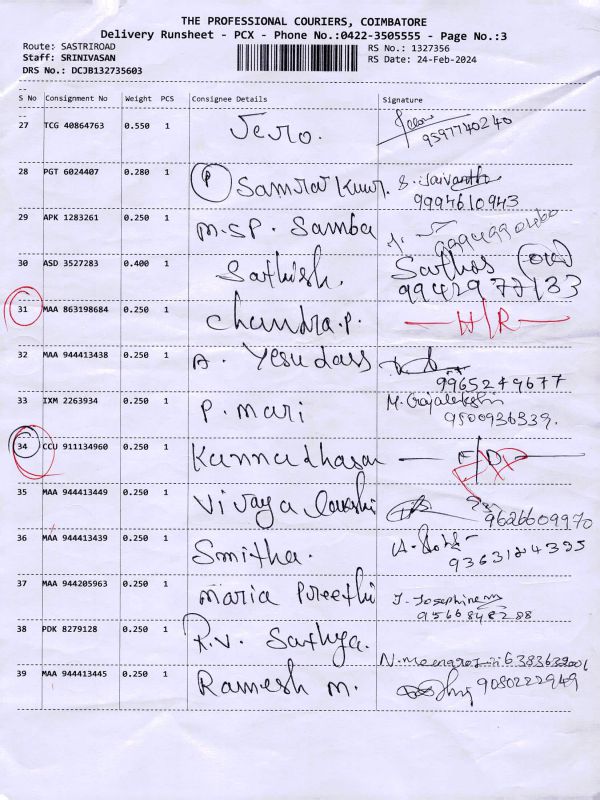 THE PROFESSIONAL COURIERS, COIMBATORE
Delivery Runsheet - PCX - Phone No.:0422-3505555 - Page No.:3
Route: SASTRIROAD RS No.: 1327356
Staff: SRINIVASAN RS Date: 24-Feb-2024
DRS No.: DCJB132735603
S No Consignment No Weight PCS Consignee Details Signature
27 TCG 40864763 0.550 1 Jero. 9597740240
28 PGT 6024407 0.280 1 P Samraj Kumar. S. Jaivantha
9994610943
29 APK 1283261 0.250 1 M.SP. Samba 9994990460
30 ASD 3527283 0.400 1 Sathish. Sathos
9942977133
31 MAA 863198684 0.250 1 Chandra.P. H/R
32 MAA 944413438 0.250 1 A. Yesudass
9965249677
33 IXM 2263934 0.250 1 P. mari M. Rajalekshi
9500936339.
34 CCU 911134960 0.250 1 Kannadhasan F/D
35 MAA 944413449 0.250 1 Vijaya Lakshi
9626609970
36 MAA 944413439 0.250 1 Smitha.
9363184395
37 MAA 944205963 0.250 1 Maria Preethi J. Josephine
9566848288
38 PDK 8279128 0.250 1 R.V. Sathya.
39 MAA 944413445 0.250 1 Ramesh M. 9080222949